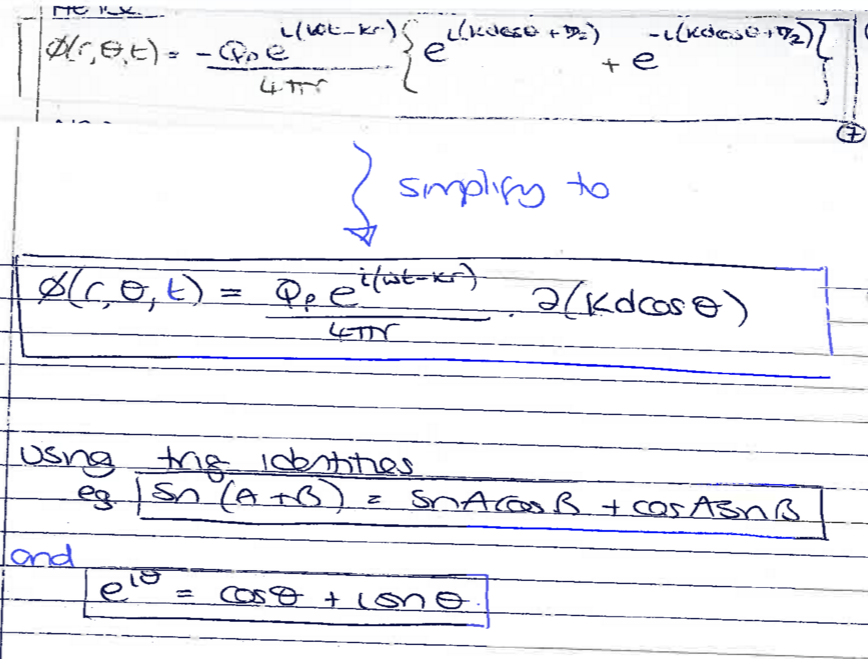 ϕ(r,θ,t) = -Qₚe^{i(ωt-kr)}/4πr { e^{i(kdcosθ + π/2)} + e^{-i(kdcosθ+π/2)} }
⑦
simplify to
ϕ(r,θ,t) = Qₚe^{i(ωt-kr)}/4πr . 2(kdcosθ)
using trig identities
eg sin(A+B) = sinAcosB + cosAsinB
and
e^{iθ} = cosθ + isinθ.